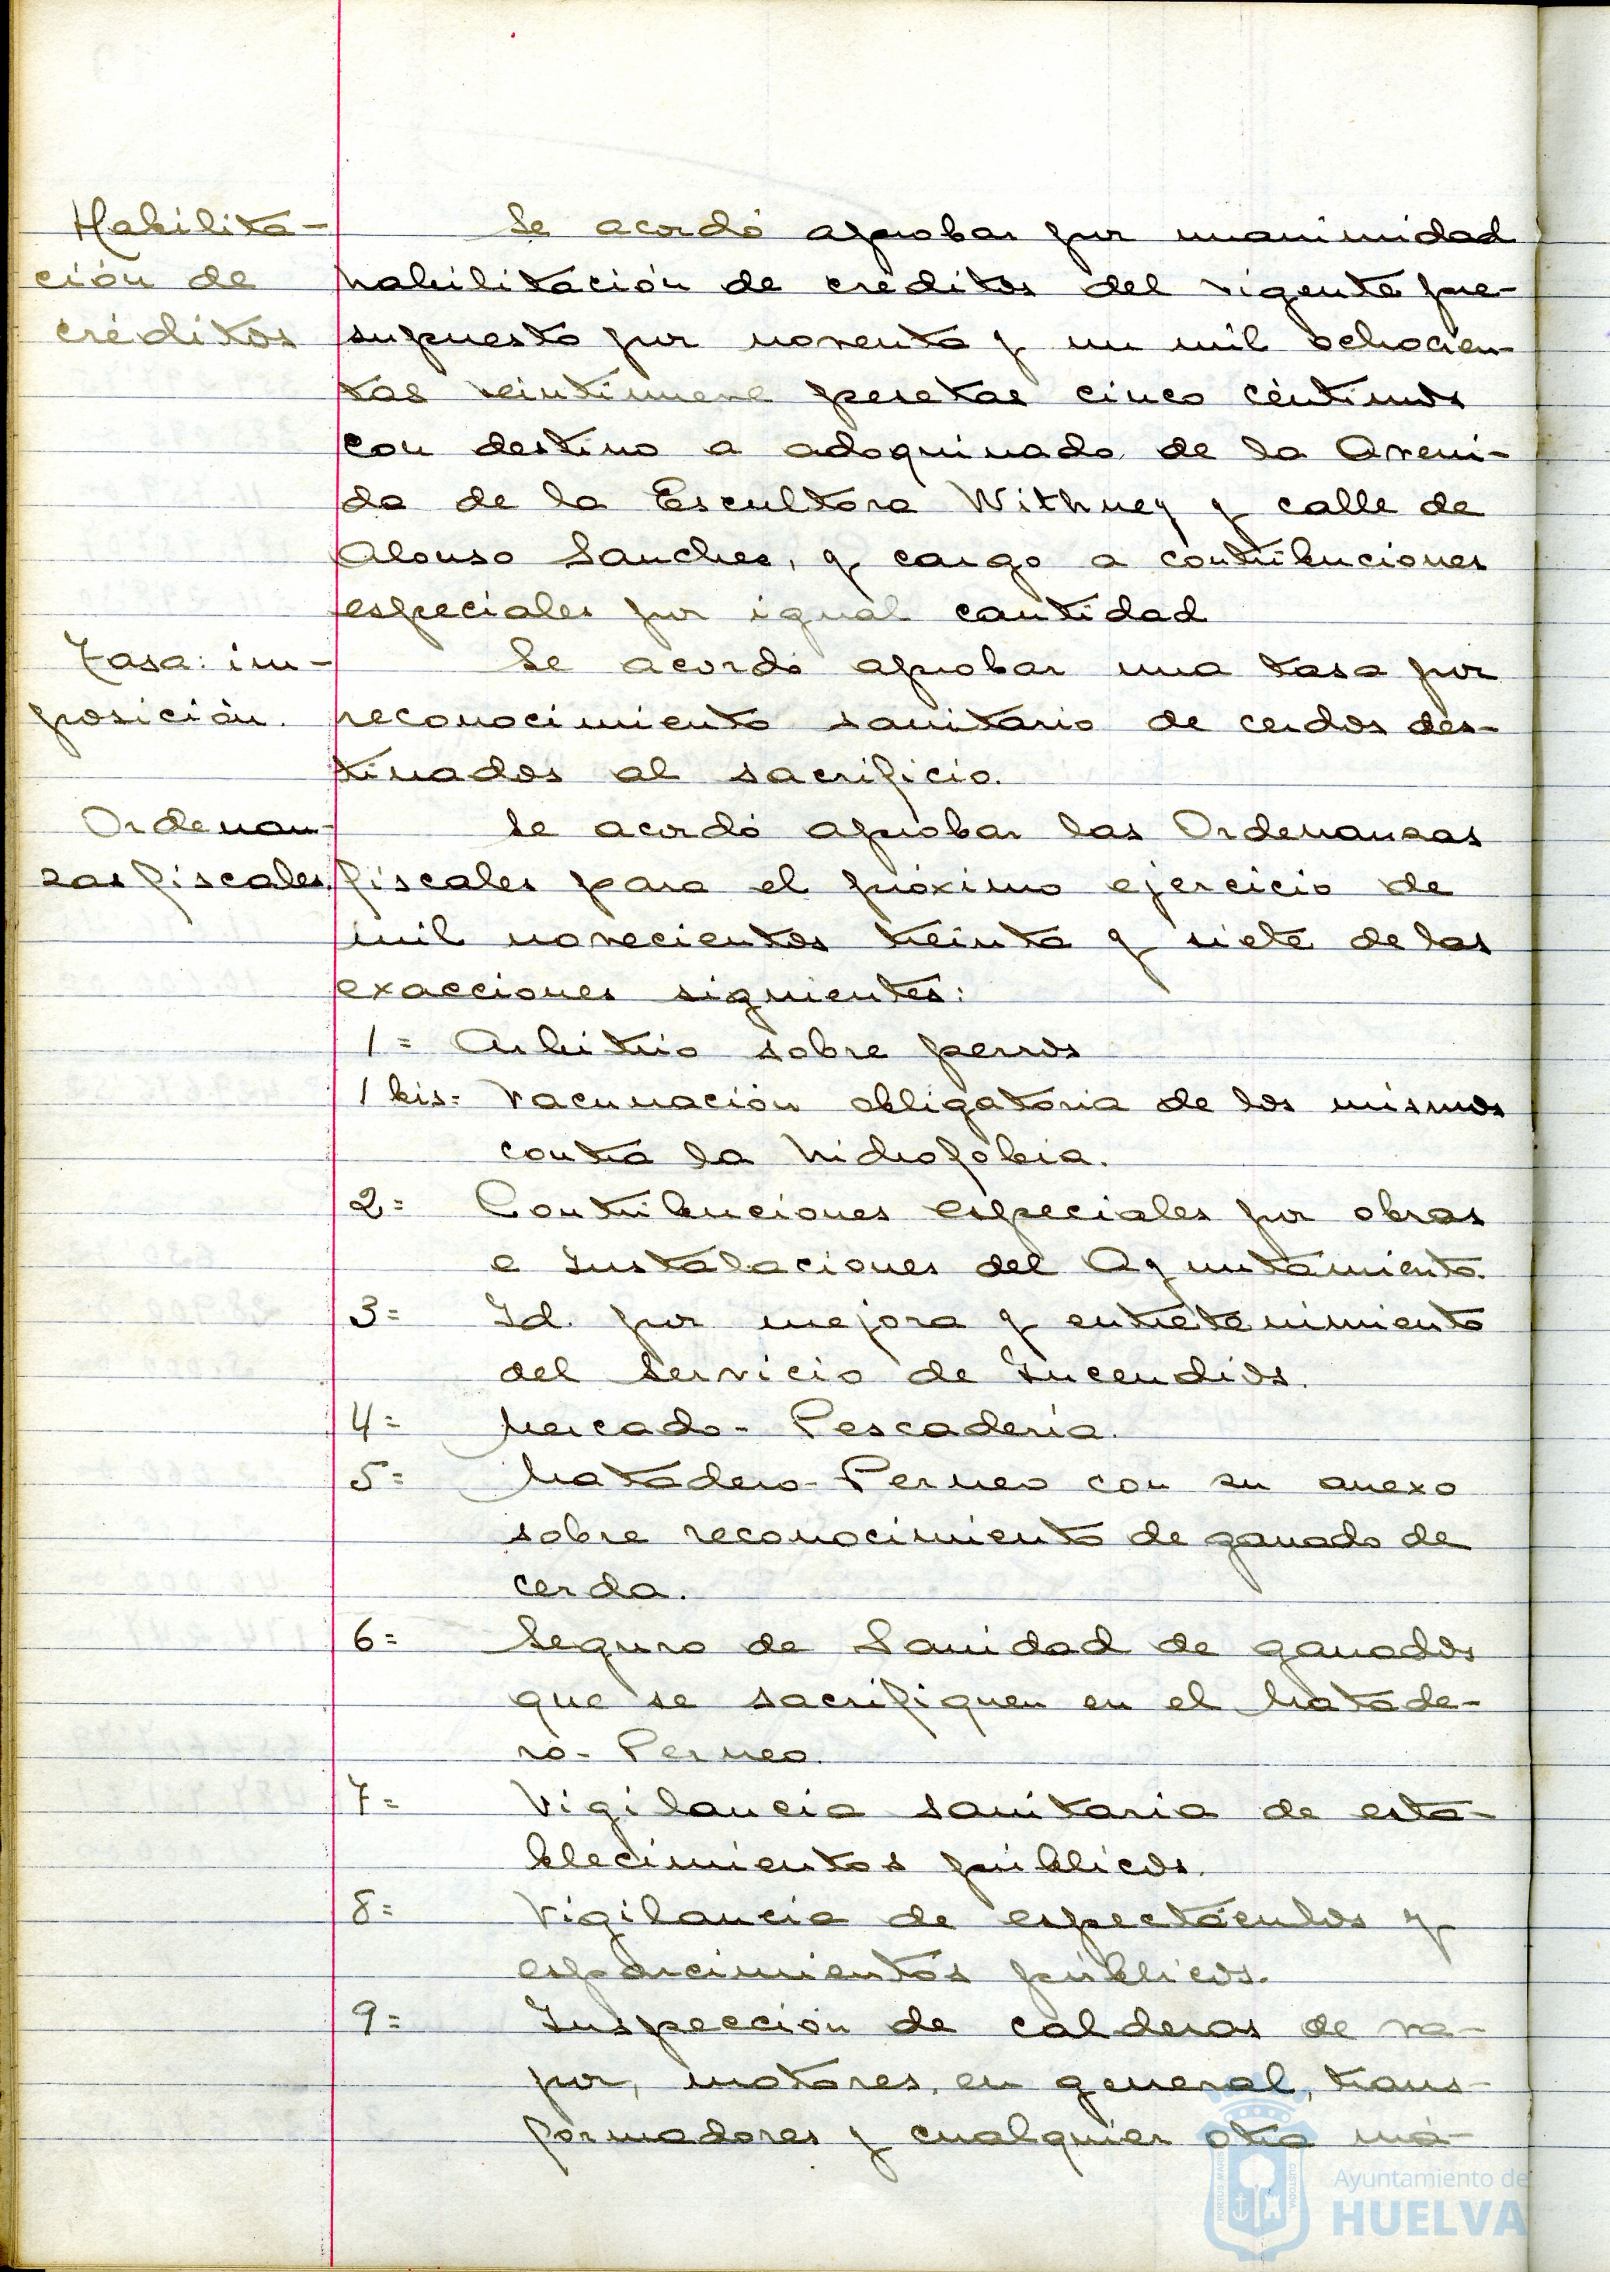 Habilita- Se acordó aprobar por unanimidad
ción de habilitación de créditos del vigente pre-
créditos supuesto por noventa y un mil ochocien-
tas veintinueve pesetas cinco céntimos
con destino a adoquinado de la Aveni-
da de la Escultora Withney y calle de
Alonso Sanchez, y cargo a contribuciones
especiales por igual cantidad
Tasa: im- Se acordó aprobar una tasa por
posición. reconocimiento sanitario de cerdos des-
tinados al sacrificio.
Ordenan- Se acordó aprobar las Ordenanzas
zas fiscales. fiscales para el próximo ejercicio de
mil novecientos treinta y siete de las
exacciones siguientes:
1= Arbitrio sobre perros
1 bis= Vacunación obligatoria de los mismos
contra la hidrofobia.
2= Contribuciones especiales por obras
e Instalaciones del Ayuntamiento.
3= Id. por mejora y entretenimiento
del Servicio de Incendios.
4= Mercado- Pescadería.
5= Matadero- Perneo con su anexo
sobre reconocimiento de ganado de
cerda.
6= Seguro de Sanidad de ganados
que se sacrifiquen en el Matade-
ro- Perneo.
7= Vigilancia sanitaria de esta-
blecimientos públicos.
8= Vigilancia de espectáculos y
esparcimientos públicos.
9= Inspección de calderas de va-
por, motores, en general, trans-
formadores y cualquier otra má-
PORTUS MARIS
CUSTODIA
Ayuntamiento de
HUELVA